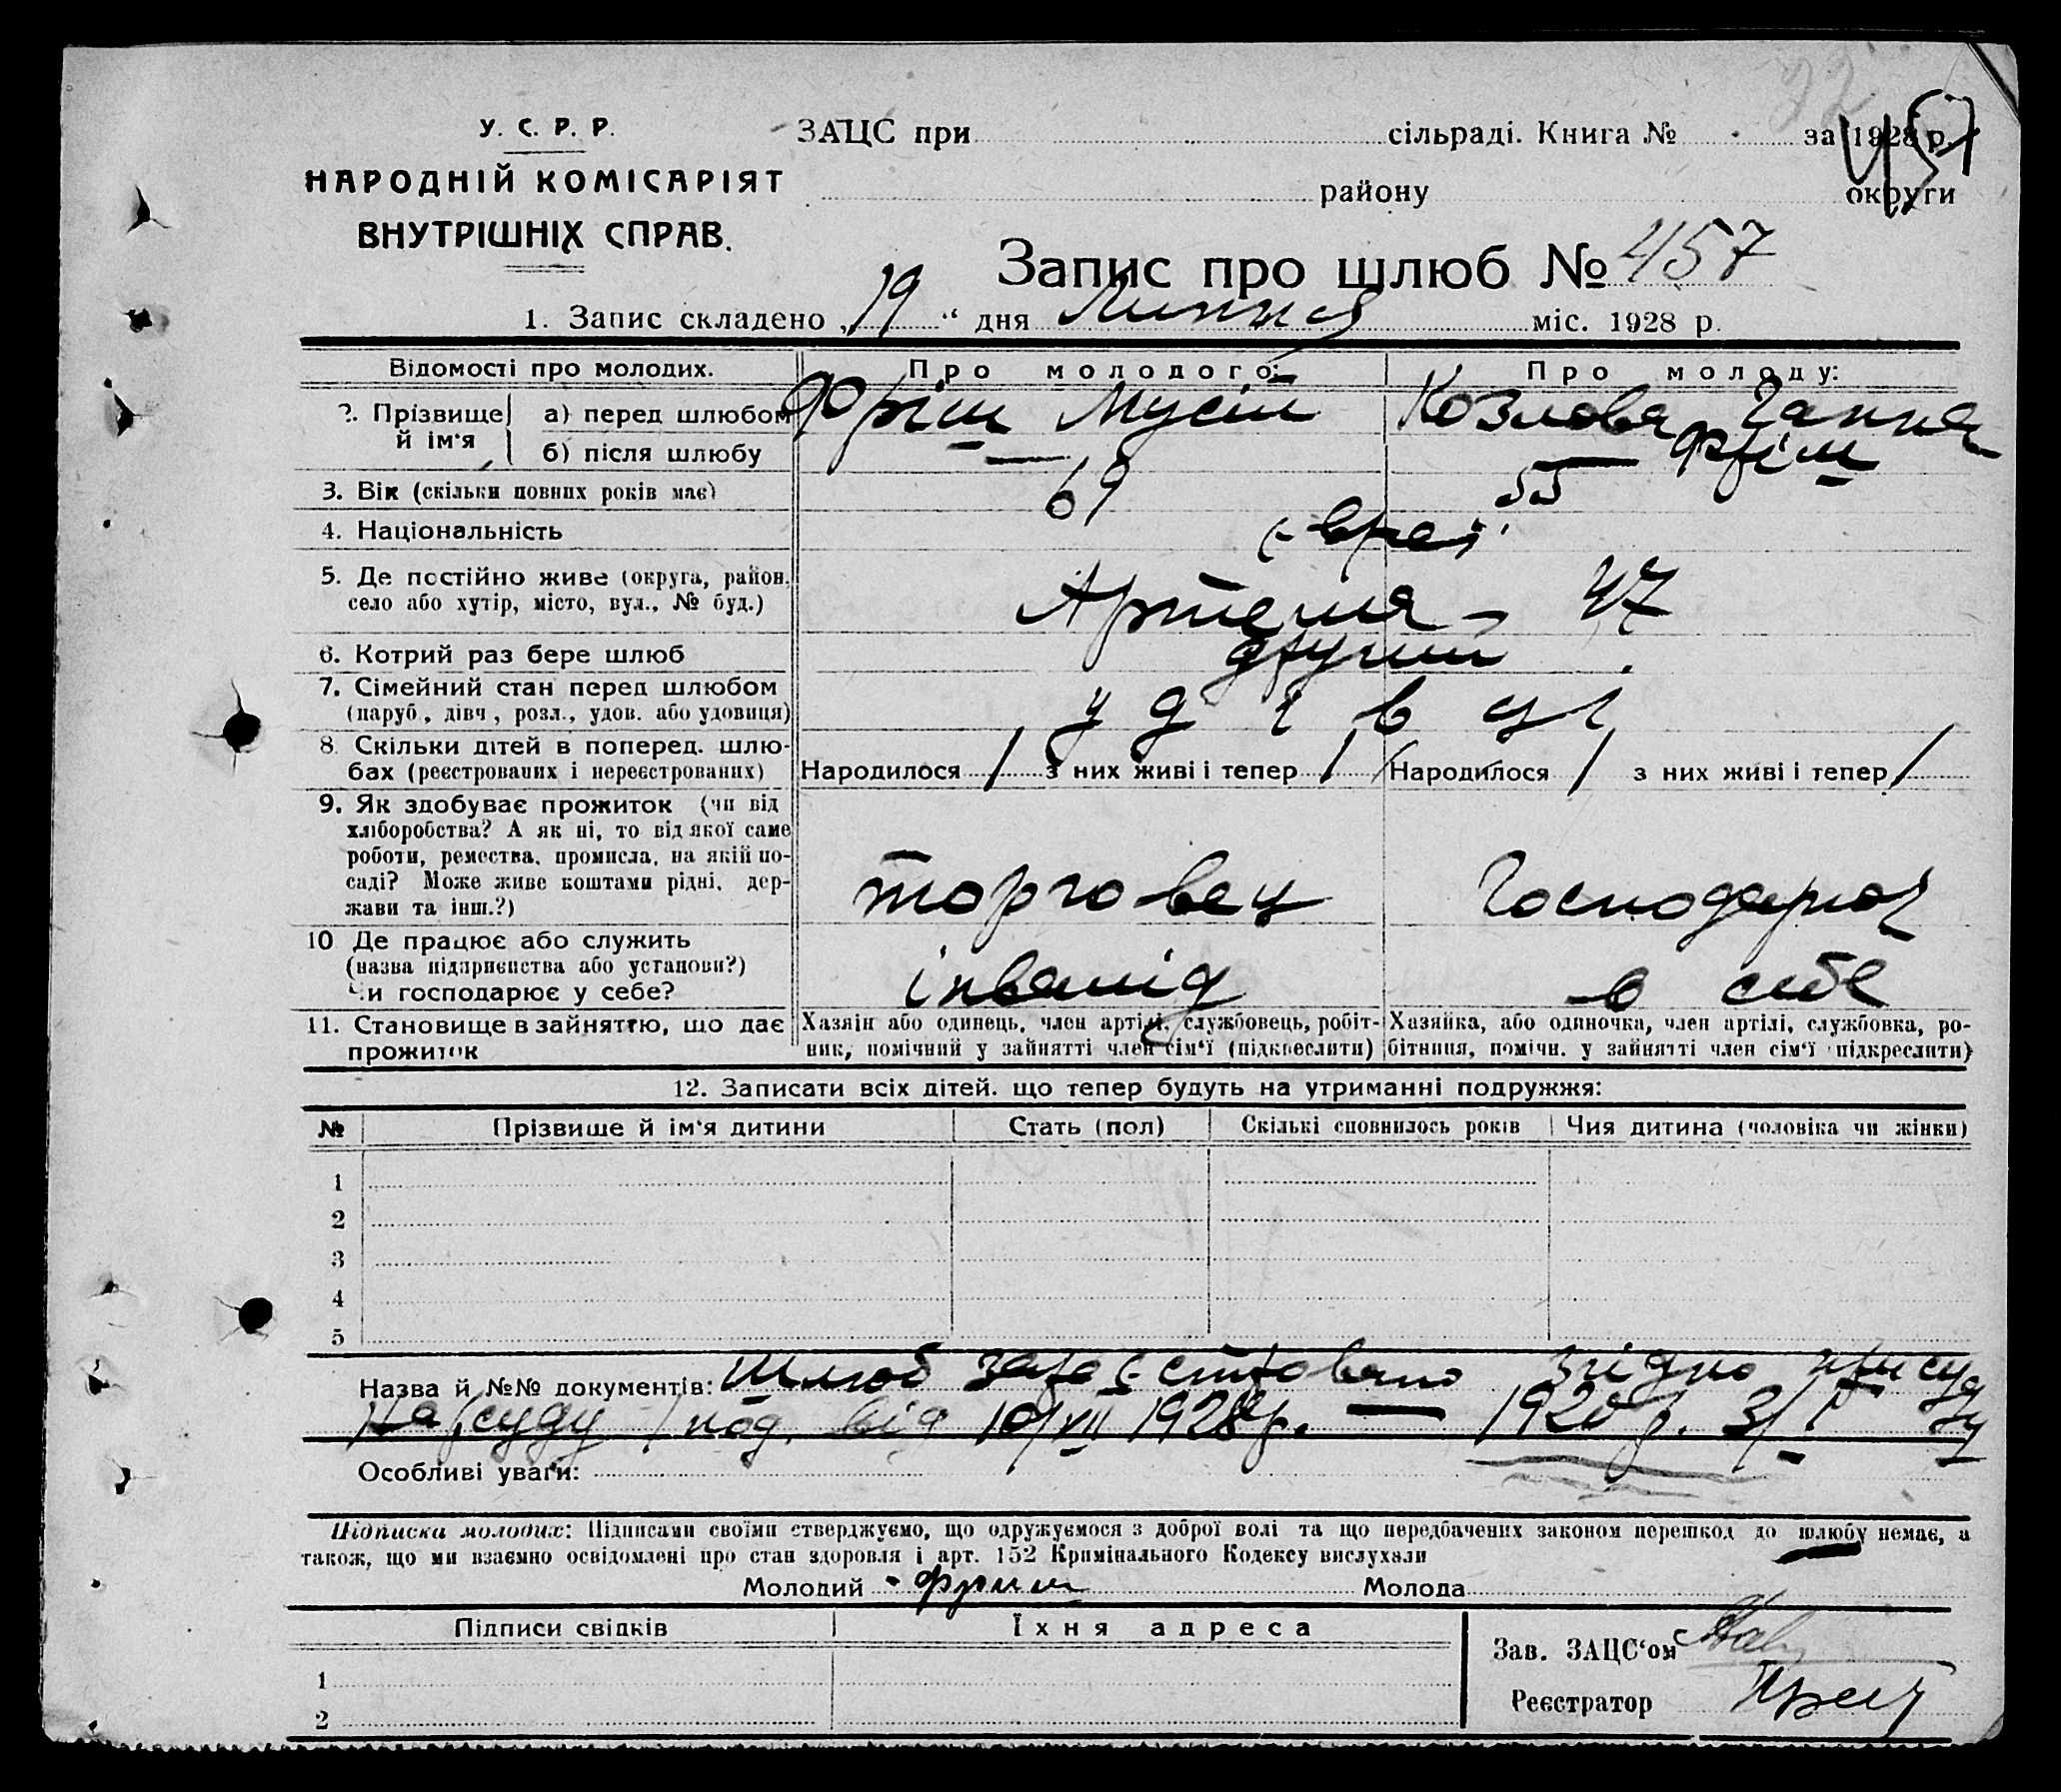 У. С. Р. Р.
НАРОДНІЙ КОМІСАРІЯТ
ВНУТРІШНІХ СПРАВ.
ЗАЦС при сільраді. Книга № за 1928 р.
району округи
457
Запис про шлюб № 457
1. Запис складено „19“ дня Липня міс. 1928 р.
Відомості про молодих. Про молодого: Про молоду:
2. Прізвище й ім'я а) перед шлюбом Фріш Мусій Козлова Ганна
б) після шлюбу — — Фріш
3. Вік (скільки повних років має) 69 55
4. Національність євреї
5. Де постійно живе (округа, район,
село або хутір, місто, вул., № буд.) Артема - 47
6. Котрий раз бере шлюб другий
7. Сімейний стан перед шлюбом
(паруб., дівч., розл., удов. або удовиця) удівці
8. Скільки дітей в поперед. шлю-
бах (реєстрованих і нереєстрованих) Народилося / з них живі і тепер / Народилося / з них живі і тепер /
9. Як здобуває прожиток (чи від
хліборобства? А як ні, то від якої саме
роботи, ремества, промисла, на якій по-
саді? Може живе коштами рідні, дер-
жави та інш.?) торговец Господарює
10 Де працює або служить
(назва підприємства або установи?)
Чи господарює у себе? інвалід в себе
11. Становище в зайняттю, що дає
прожиток
Хазяїн або одинець, член артілі, службовець, робіт-
ник, помічний у зайнятті член сім'ї (підкреслити)
Хазяйка, або одиночка, член артілі, службовка, ро-
бітниця, помічн. у зайнятті член сім'ї (підкреслити)
12. Записати всіх дітей. що тепер будуть на утриманні подружжя:
№ Прізвище й ім'я дитини Стать (пол) Скількі сповнилось років Чия дитина (чоловіка чи жінки)
1
2
3
4
5
Назва й №№ документів: Шлюб зареєстровано згідно присуду
Нарсуду від 10/VII 1928 р. — 1920 р.
Особливі уваги:
Підписка молодих: Підписами своїми стверджуємо, що одружуємося з доброї волі та що передбачених законом перешкод до шлюбу немає, а
також, що ми взаємно освідомлені про стан здоровля і арт. 152 Кримінального Кодексу вислухали
Молодий Фриш Молода
Підписи свідків Їхня адреса
Зав. ЗАЦС'ом
1
Реєстратор
2